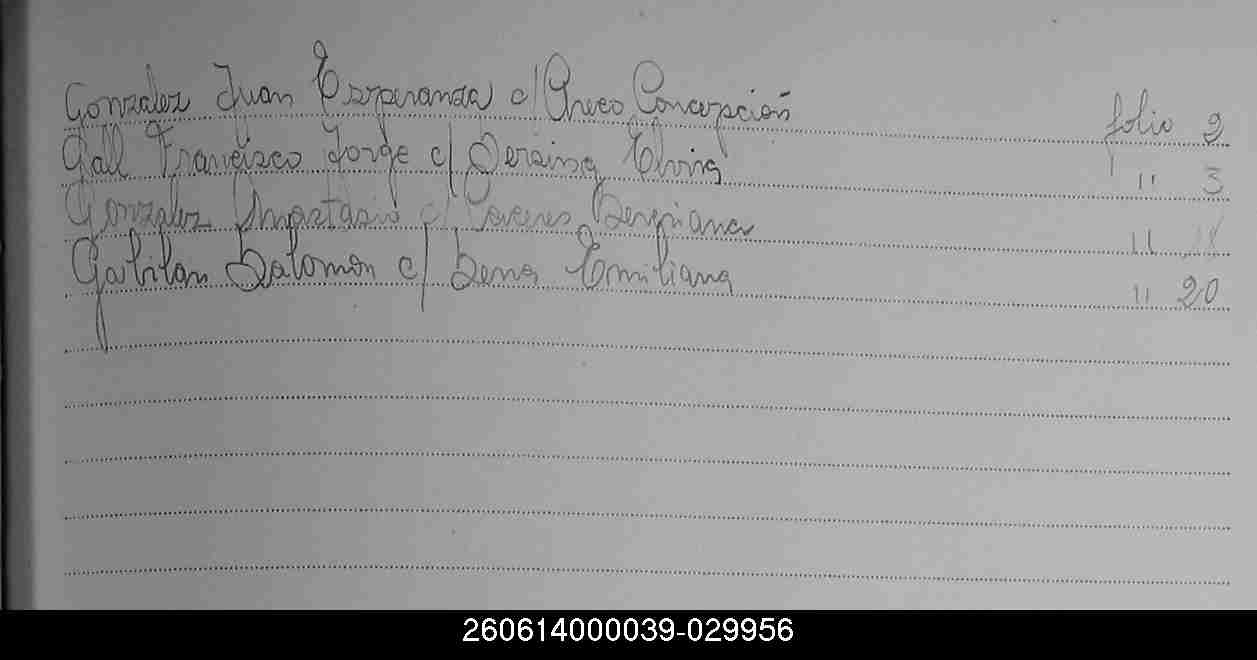 Gonzalez Juan Esperanza c/ Checo Concepción folio 2
Gall Francisco Jorge c/ Elvira " 3
Gonzalez Anastasio c/ Caceres "
Gabilan Salomon c/ Emiliana " 20
260614000039-029956